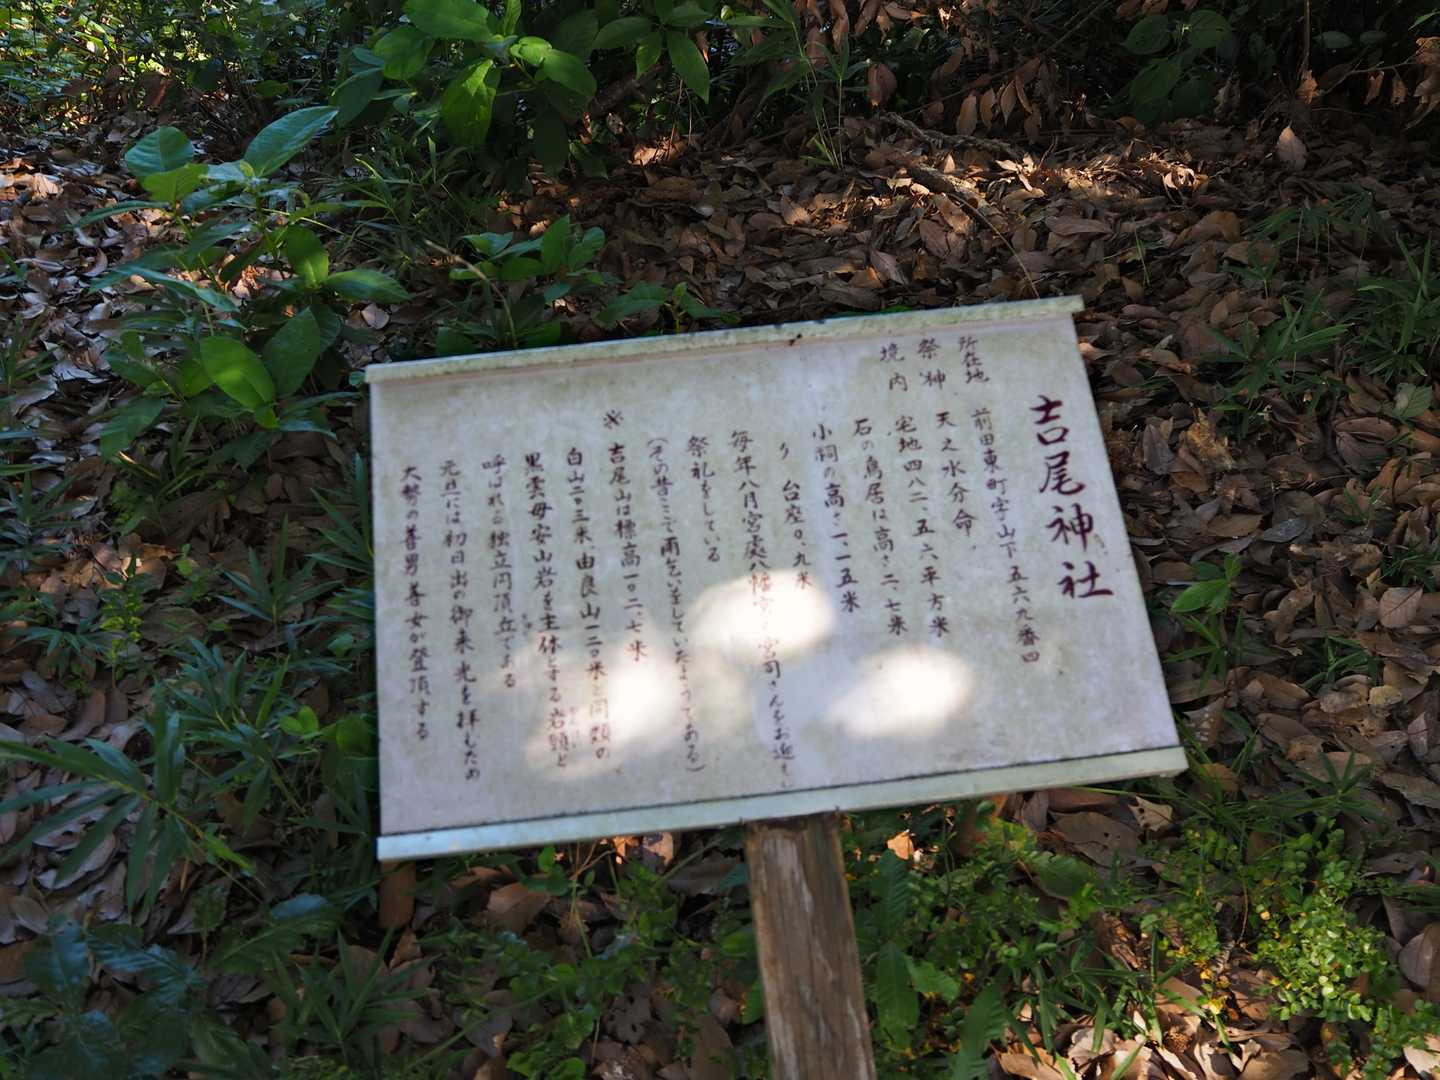 吉尾神社
所在地 前田東町字山下五六九番四
祭神 天之水分命
境内 宅地四八二、五六平方米
石の鳥居は高さ二、七米
小祠の高さ一、一五米
〃 台座〇、九米
毎年八月宮處八幡宮の宮司さんをお迎し
祭礼をしている
(その昔ここで雨乞いをしていたようである)
※ 吉尾山は標高一〇二、七米
白山二〇三米、由良山一二〇米と同類の
黒雲母安山岩を主体とする岩頸と
呼ばれる独立円頂丘である
元旦には初日出の御来光を拝むため
大勢の善男善女が登頂する